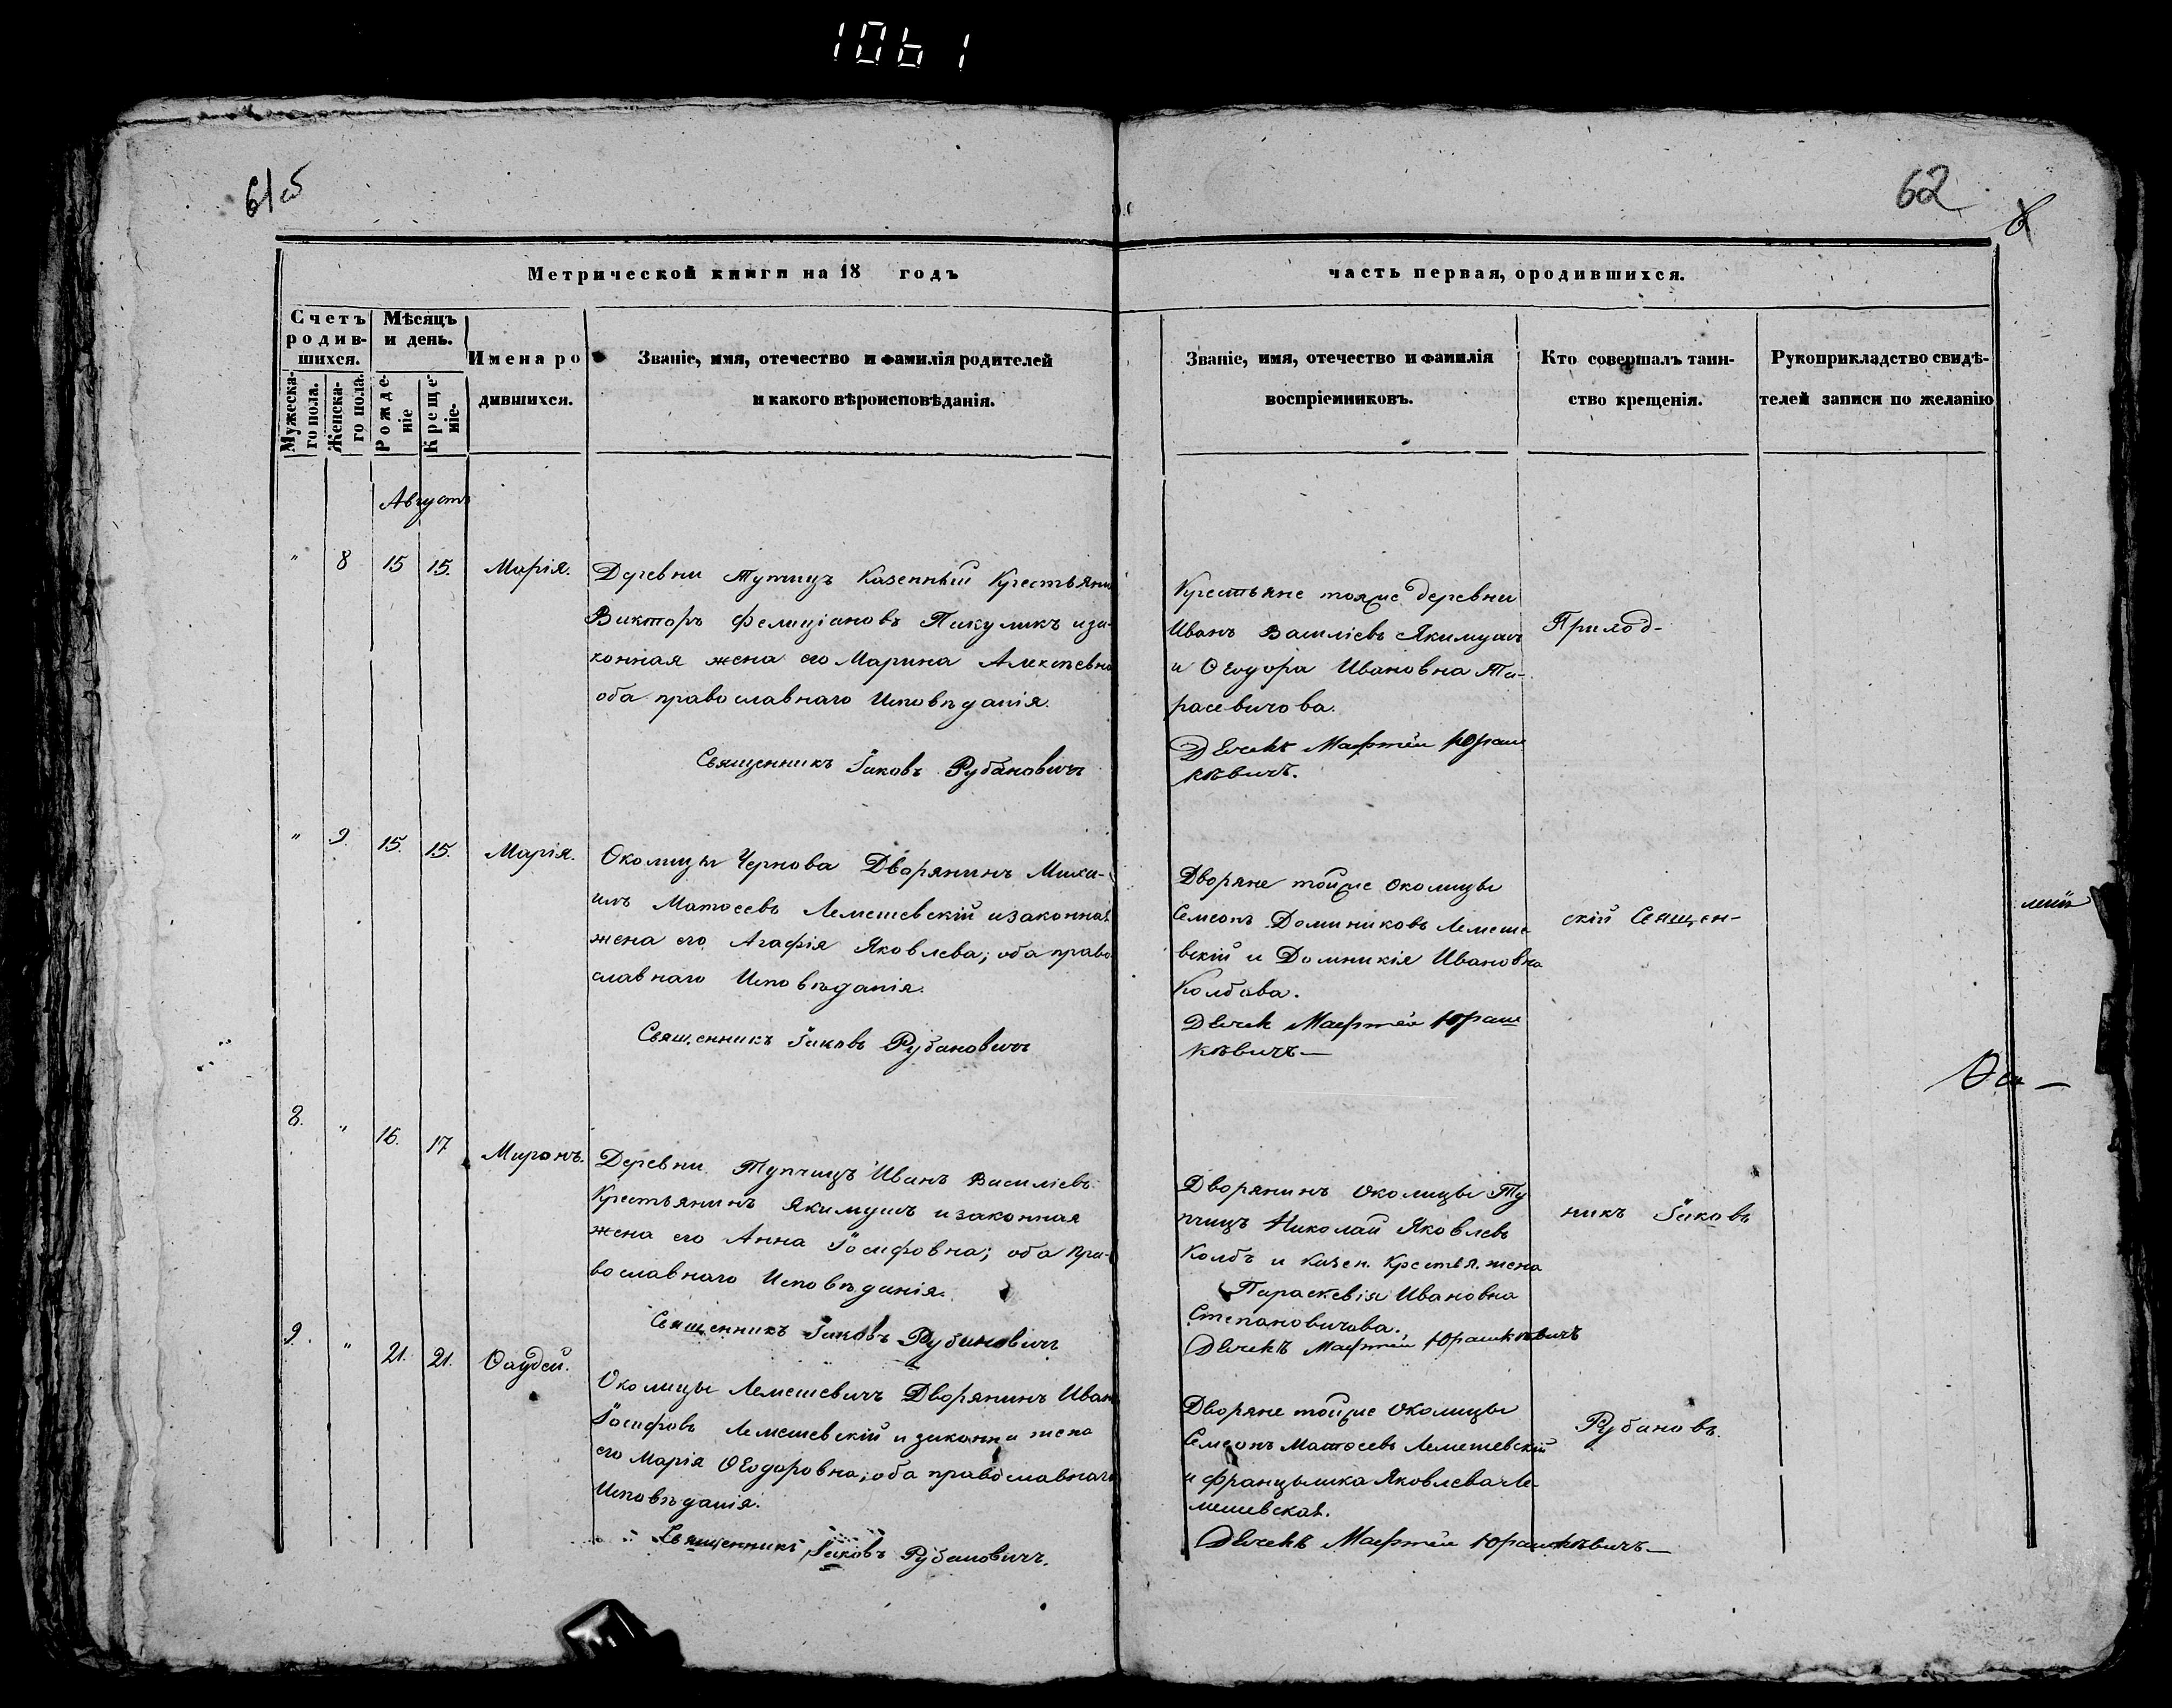 1061
61об
62
Метрической книги на 18 годъ
часть первая, ородившихся.
Счетъ родив-шихся.
Мѣсяцъ и день.
Имена родившихся.
Званіе, имя, отечество и фамилія родителей
и какого вѣроисповѣданія.
Званіе, имя, отечество и фамилія
воспріемниковъ.
Кто совершалъ таин-
ство крещенія.
Рукоприкладство свидѣ-
телей записи по желанію
Мужеска-го пола.
Женска-го пола.
Рожде-ніе
Креще-ніе.
Августъ
" 8 15 15. Марія.
Деревни Тупчицъ Казенный Крестьянинъ
Викторъ Фелиціановъ Пикуликъ иза-
конная жена его Марина Алексѣевна
оба православнаго Исповѣданія.
Священникъ Іаковъ Рубановичъ
Крестьяне тояже деревни
Иванъ Василіевъ Якимушъ
и Ѳеодора Ивановна Та-
расевичова.
Дьячекъ Мафтей Юраш
кѣвичъ.
Приход-
" 9. 15. 15. Марія.
Околицы Чернова Дворянинъ Миха-
илъ Матѳеевъ Лемешевскій изаконная
жена его Агафія Яковлева; оба право
славнаго Исповѣданія.
Священникъ Іаковъ Рубановичъ
Дворяне тойже Околицы
Семеонъ Доминиковъ Лемеше
вскій и Домникія Ивановна
Колбова.
Дьячек Мафтей Юраш
кѣвичъ—
скій Священ-
8. " 16. 17 Миронъ.
Деревни Тупчицъ Иванъ Василіевъ
Крестьянинъ Якимушъ изаконная
жена его Анна Іосифовна; оба пра-
вославнаго Исповѣданія.
Священникъ Іаковъ Рубановичъ
Дворянинъ Околицы Ту
пчицъ Николай Яковлевъ
Колбъ и Казен. Крестья. жена
Параскевія Ивановна
Степановичова.
Дьячекъ Мафтей Юрашкѣвичъ
никъ Іаковъ
9. " 21. 21. Ѳаддей.
Околицы Лемешевичъ Дворянинъ Иванъ
Іосифовъ Лемешевскій и законна жена
его Марія Ѳеодоровна; оба православнаго
Исповѣданія.
Священникъ Іаковъ Рубановичъ.
Дворяне тойже Околицы
Семеонъ Матѳеевъ Лемешевскій
и Францышка Яковлева Ле-
мешевская.
Дьячекъ Мафтей Юрашкѣвичъ—
Рубановъ.